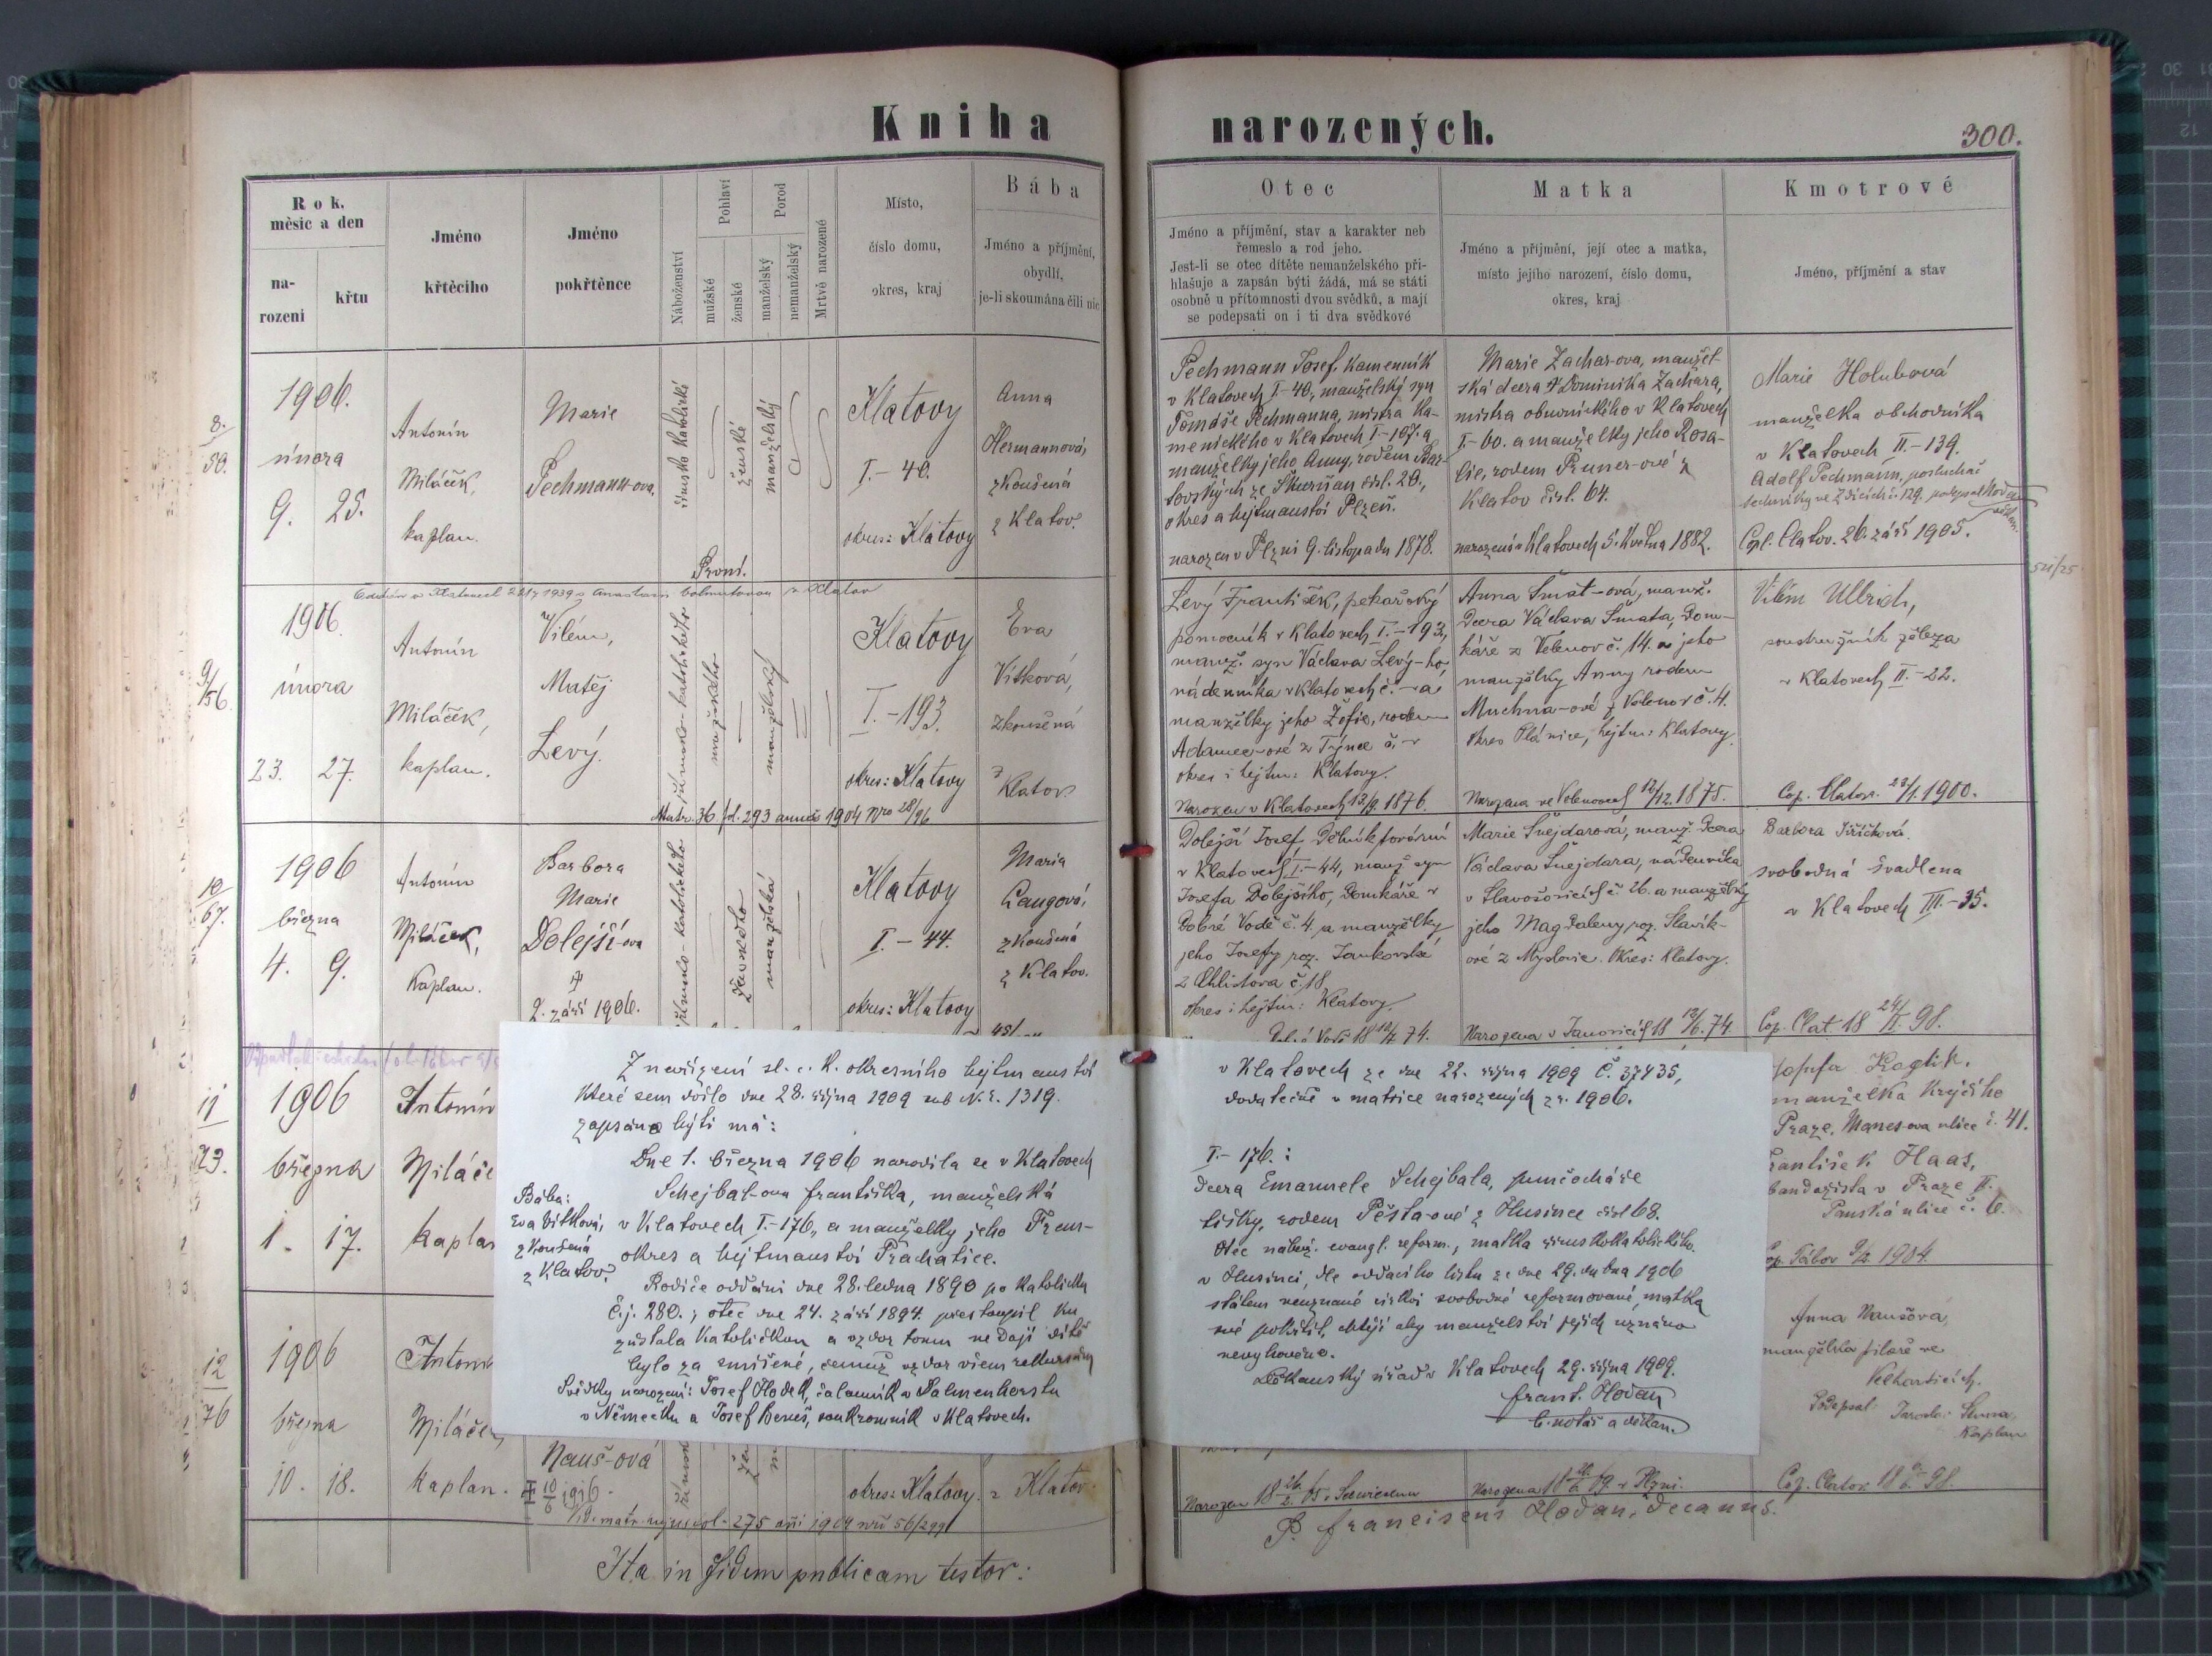 Kniha narozených.
300.
Rok, měsíc a den
narození
křtu
Jméno křtěcího
Jméno pokřtěnce
Náboženství
Pohlaví
mužské
ženské
Porod
manželský
nemanželský
Mrtvě narozené
Místo,
číslo domu,
okres, kraj
Bába
Jméno a příjmění,
obydlí,
je-li skoumána čili nic
Otec
Jméno a příjmění, stav a karakter neb
řemeslo a rod jeho.
Jest-li se otec dítěte nemanželského při-
hlašuje a zapsán býti žádá, má se státi
osobně u přítomnosti dvou svědků, a mají
se podepsati on i ti dva svědkové
Matka
Jméno a příjmění, její otec a matka,
místo jejího narození, číslo domu,
okres, kraj
Kmotrové
Jméno, příjmění a stav
8.
50.
1906.
února
9. 25.
Antonín
Miláček,
kaplan.
Marie
Pechmann-ova.
římsko katolické
ženské
manželský
První.
Klatovy
I.-40.
okres: Klatovy
Anna
Hermannová,
zkoušená
z Klatov.
Pechmann Josef, kamenník
v Klatovech I-40., manželský syn
Tomáše Pechmanna, mistra ka-
menického v Klatovech I-107. a
manželky jeho Anny, rodem Bar-
tovských ze Skurňan čísl. 20.,
okres a hejtmanství Plzeň.
narozen v Plzni 9. listopadu 1878.
Marie Zachar-ova, manžel-
ská dcera Dominika Zachara,
mistra obuvnického v Klatovech
I.-60. a manželky jeho Rosa-
lie, rodem Pruner-ové z
Klatov čísl. 64.
narozená v Klatovech 5. května 1882.
Marie Holubová
manželka obchodníka
v Klatovech II-139.
Adolf Pechmann, posluchač
techniky ve Zdicích č. 129, podepsal Hodan
děkan.
Cpl. Clatov. 26. září 1905.
9/56
1906.
února
23. 27.
Antonín
Miláček,
kaplan.
Vilém,
Matěj
Levý.
římsko-katolického
mužského
manželský
Matr. 36 fol. 293 anno 1904 Nro 28/96
Klatovy
I.-193.
okres: Klatovy
Eva
Vítková,
zkoušená
z
Klatov.
Levý František, pekařský
pomocník v Klatovech I.-193.,
manž. syn Václava Levý-ho,
nádenníka v Klatovech č. - a
manželky jeho Žofie, rodem
Adamec-ové z Týnce č. -
okres i hejtm: Klatovy.
Narozen v Klatovech 13/9. 1876.
Anna Šmat-ová, manž.
dcera Václava Šmata, dom-
káře z Velenov č. 14. a jeho
manželky Anny rodem
Muchna-ové z Velenov č. 4.
okres Plánice, hejtm: Klatovy.
Narozena ve Velenovech 12/12. 1875.
Vilém Ullrich,
soustružník železa
v Klatovech II.-22.
Cop. Clatov. 23/1. 1900.
10/67.
1906
března
4. 9.
Antonín
Miláček,
Kaplan.
Barbora
Marie
Dolejší-ova
2. září 1906.
římsko-katolického
ženského
manželská
Klatovy
I.-44.
okres: Klatovy
Maria
Langová,
zkoušená
z Klatov.
Dolejší Josef, dělník tovární
v Klatovech I-44, manž syn
Josefa Dolejšího, domkáře v
Dobré Vodě č. 4. a manželky
jeho Josefy roz. Jankovské
z Chlistova č. 18
okres i hejtm: Klatovy.
Marie Šnejdarová, manž. dcera
Václava Šnejdara, nádenníka
v Slavošovicích č. 26. a manželky
jeho Magdaleny roz. Slavík-
ové z Myslovic. Okres: Klatovy.
Narozena v Janovicích 18 12/6. 74
Barbora Jiříčková
svobodná švadlena
v Klatovech III.-35.
Cop. Clat. 18 24/II. 98.
11
73.
1906
března
1. 17.
Antonín
Miláče
kaplan
Z nařízení sl. c. k. okresního hejtmanství
které sem došlo dne 28. října 1909 sub N. e. 1319.
zapsáno býti má:
Dne 1. března 1906 narodila se v Klatovech
Schejbal-ova Františka, manželská
v Klatovech I.-176., a manželky jeho Fran-
okres a hejtmanství Prachatice.
Rodiče oddáni dne 28. ledna 1890 po katolicku
Čj. 280.; otec dne 24. září 1894. přestoupil ku
zůstala katoličkou a vzdor tomu nedají dítě
bylo za smíšené, čemuž vzdor všem rekursům
Svědky narození: Josef Hodek, čalouník v Palmenhorstu
v Německu a Josef Beneš, soukromník v Klatovech.
Bába:
Eva Vítková,
zkoušená
z Klatov.
v Klatovech ze dne 22. října 1909 č. 37435,
dodatečně v matrice narozených z r. 1906.
I.-176.:
dcera Emanuele Schejbala, punčocháře
tišky, rodem Pěšta-ové z Husince čísl 68.
Otec nábož. evangl. reform., matka římskokatolického.
v Husinci, dle oddacího listu ze dne 29. dubna 1906
státem neuznané církvi svobodné reformované, matka
své pokřtít, chtějí aby manželství jejich uznáno
nevyhověno.
Děkanský úřad v Klatovech 29. října 1909.
Frant. Hodan
b. notář a děkan.
manželka krejčího
Praze, Manesova ulice č. 41.
František Haas,
bandažista v Praze II.
Panská ulice č. 6.
Cop. Tábor 9/2. 1904.
12
76
1906
března
10. 18.
Antonín
Miláček,
kaplan.
Nauš-ová
10/6 1916.
okres: Klatovy.
z Klatov.
Narozen
Narozena v Plzni.
Anna Naušova,
manželka pilaře ve
Velharticích.
Podepsal
Kaplan
Cop. Clatov.
Ita in fidem publicam testor:
P. Franciscus Hodan, decanus.